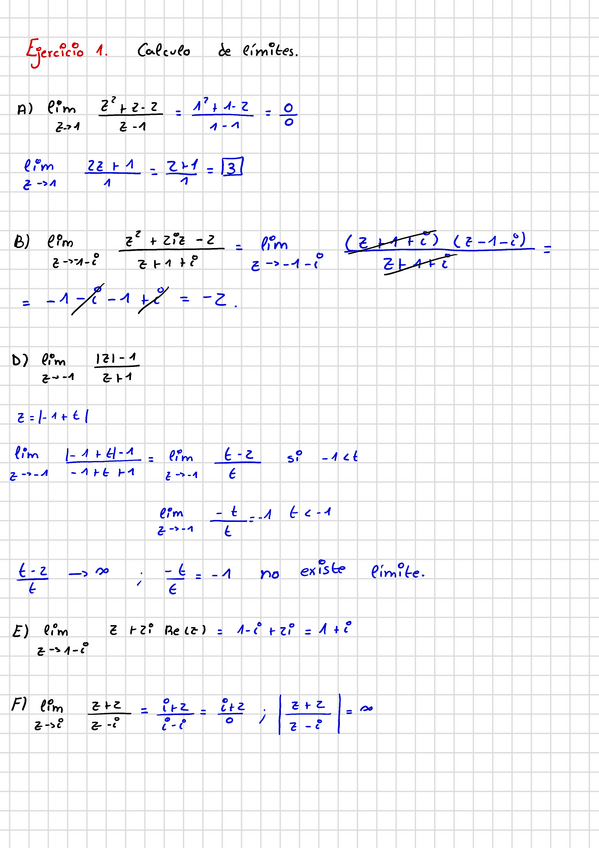 Ejercicio 1. Calculo de límites.
A) lím z→1 (z² + z - 2)/(z - 1) = (1² + 1 - 2)/(1 - 1) = 0/0
lím z→1 (2z + 1)/1 = (2+1)/1 = 3
B) lím z→-1-i (z² + 2iz - 2)/(z + 1 + i) = lím z→-1-i (z+1+i)(z-1-i)/(z+1+i) =
= -1 - i - 1 + i = -2.
D) lím z→-1 (|z| - 1)/(z+1)
z = |-1 + t|
lím z→-1 (|-1 + t| - 1)/(-1 + t + 1) = lím z→-1 (t - 2)/t si -1 < t
lím z→-1 (-t)/t = -1 t < -1
(t - 2)/t → ∞ ; (-t)/t = -1 no existe límite.
E) lím z→1-i z + 2i Re(z) = 1-i + 2i = 1 + i
F) lím z→i (z+2)/(z-i) = (i+2)/(i-i) = (i+2)/0 ; |(z+2)/(z-i)| = ∞